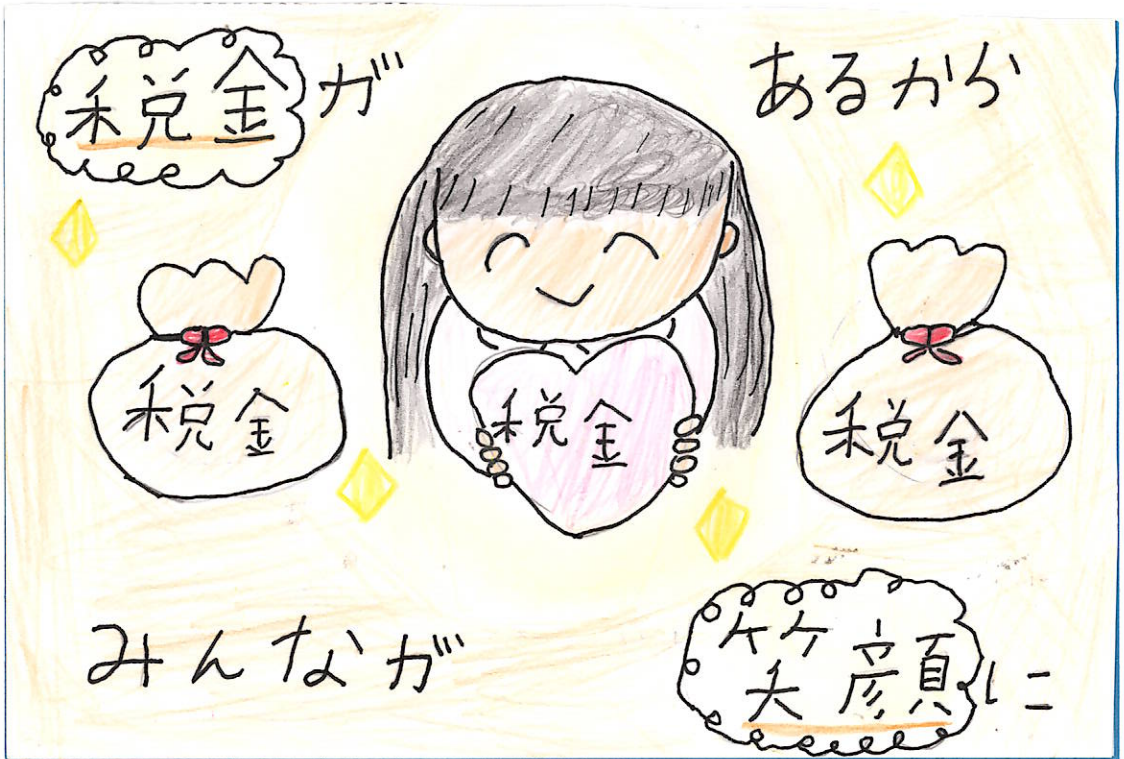 税金が あるから
税金
税金
税金
みんなが 笑顔に